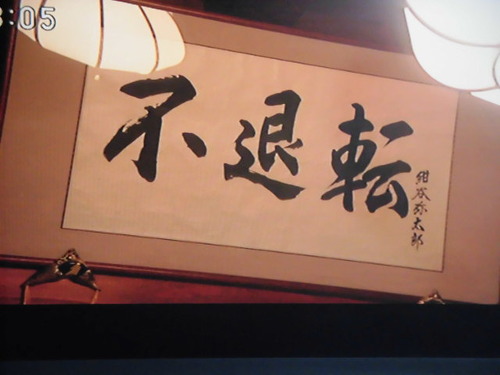 :05
不退転
紺谷弥太郎